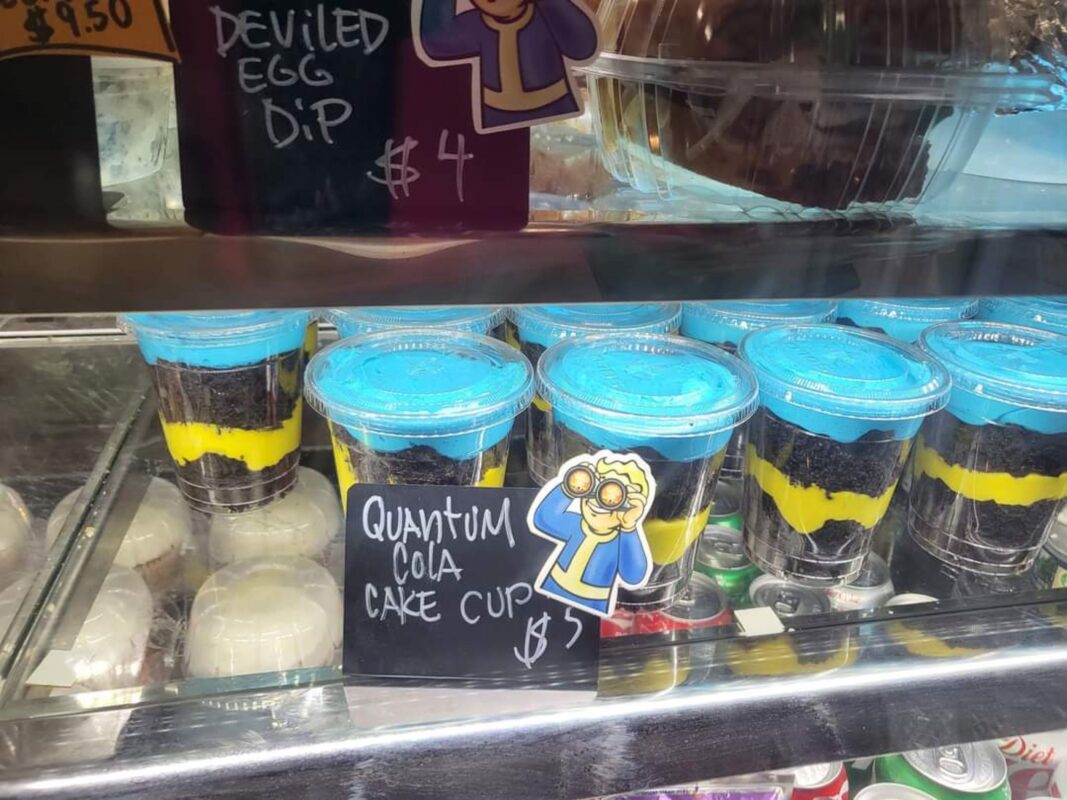 $9.50
DEVILED
EGG
DIP
$4
QUANTUM
COLA
CAKE CUP
$5
Diet